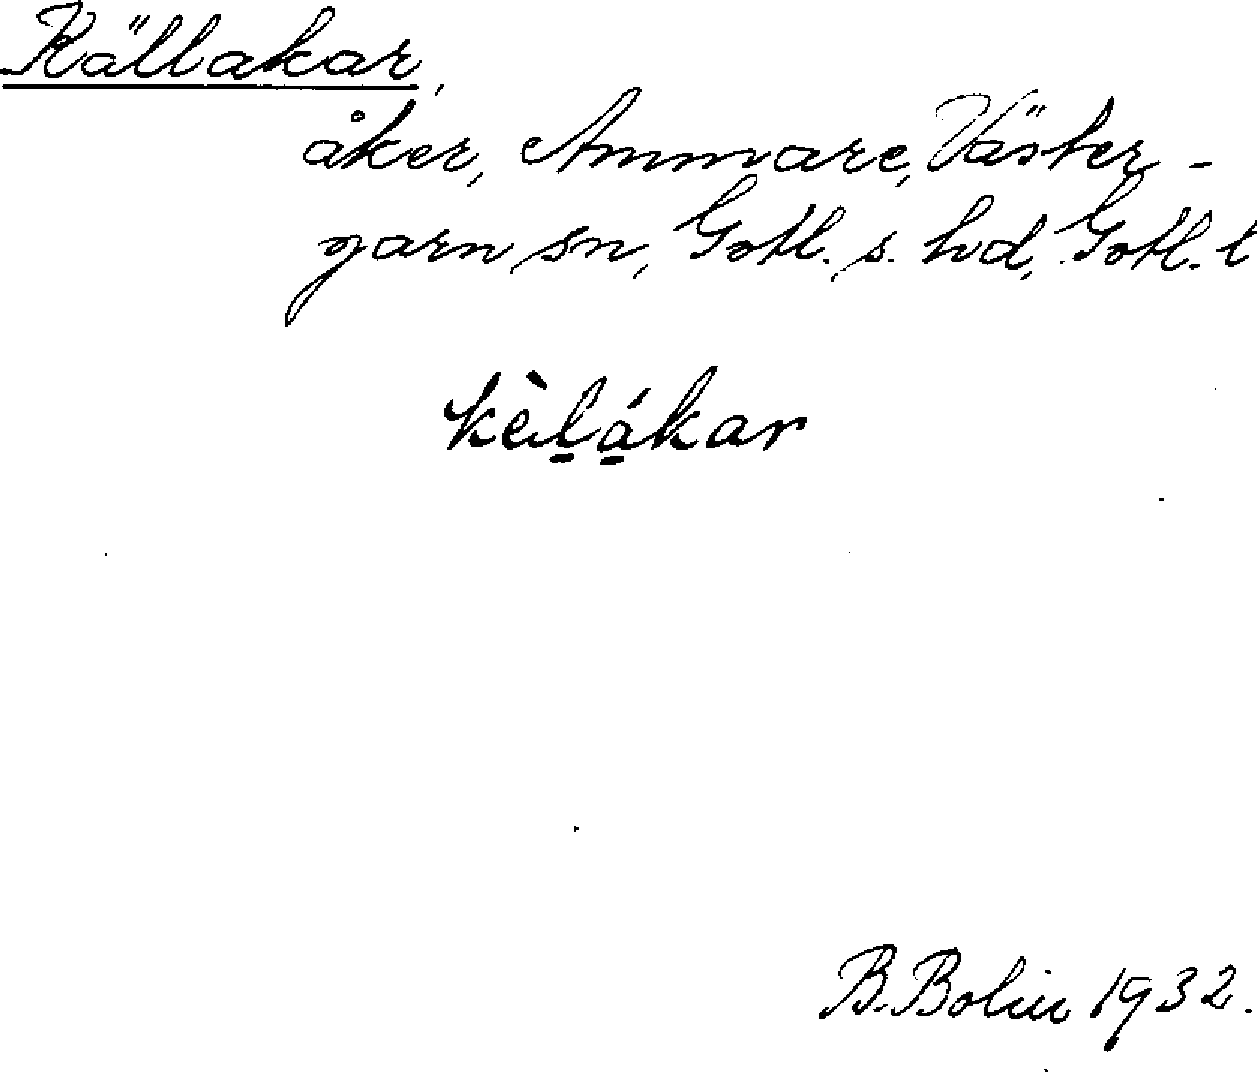 Källakar,
åker, Ammare, Väster-
garn sn, Gotl. s. hd, Gotl. l
kèl̠á̠kar
B. Bolin 1932.